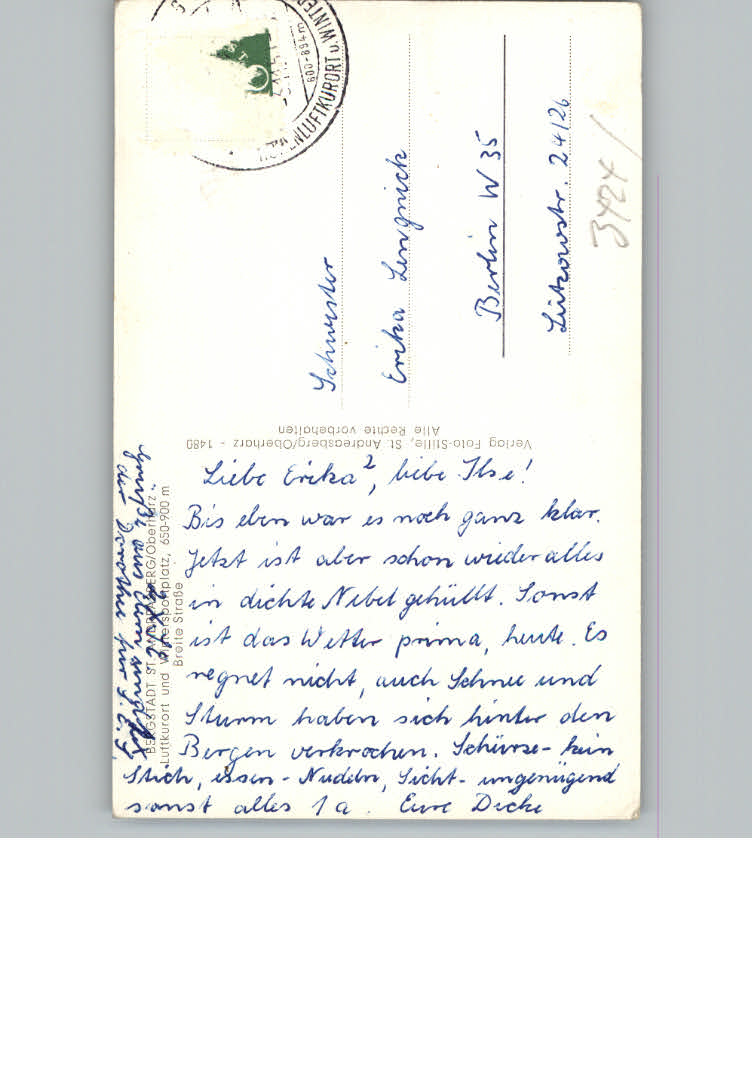 HÖHENLUFTKURORT u. WINTER
600-894m
Schwester
Erika Lengnick
Berlin W 35
Lützowstr. 24/26
3424/
Verlag Foto-Stille, St. Andreasberg/Oberharz - 1480
Alle Rechte vorbehalten
BERGSTADT ST. ANDREASBERG/Oberharz
Luftkurort und Wintersportplatz, 650-900 m
Breite Straße
Liebe Erika², liebe Ilse!
Bis eben war es noch ganz klar.
Jetzt ist aber schon wieder alles
in dichte Nebel gehüllt. Sonst
ist das Wetter prima, heute. Es
regnet nicht, auch Schnee und
Sturm haben sich hinter den
Bergen verkrochen. Schürze - kein
Stich, essen - Nudeln, Sicht - ungenügend
sonst alles 1a. Eure Dicke